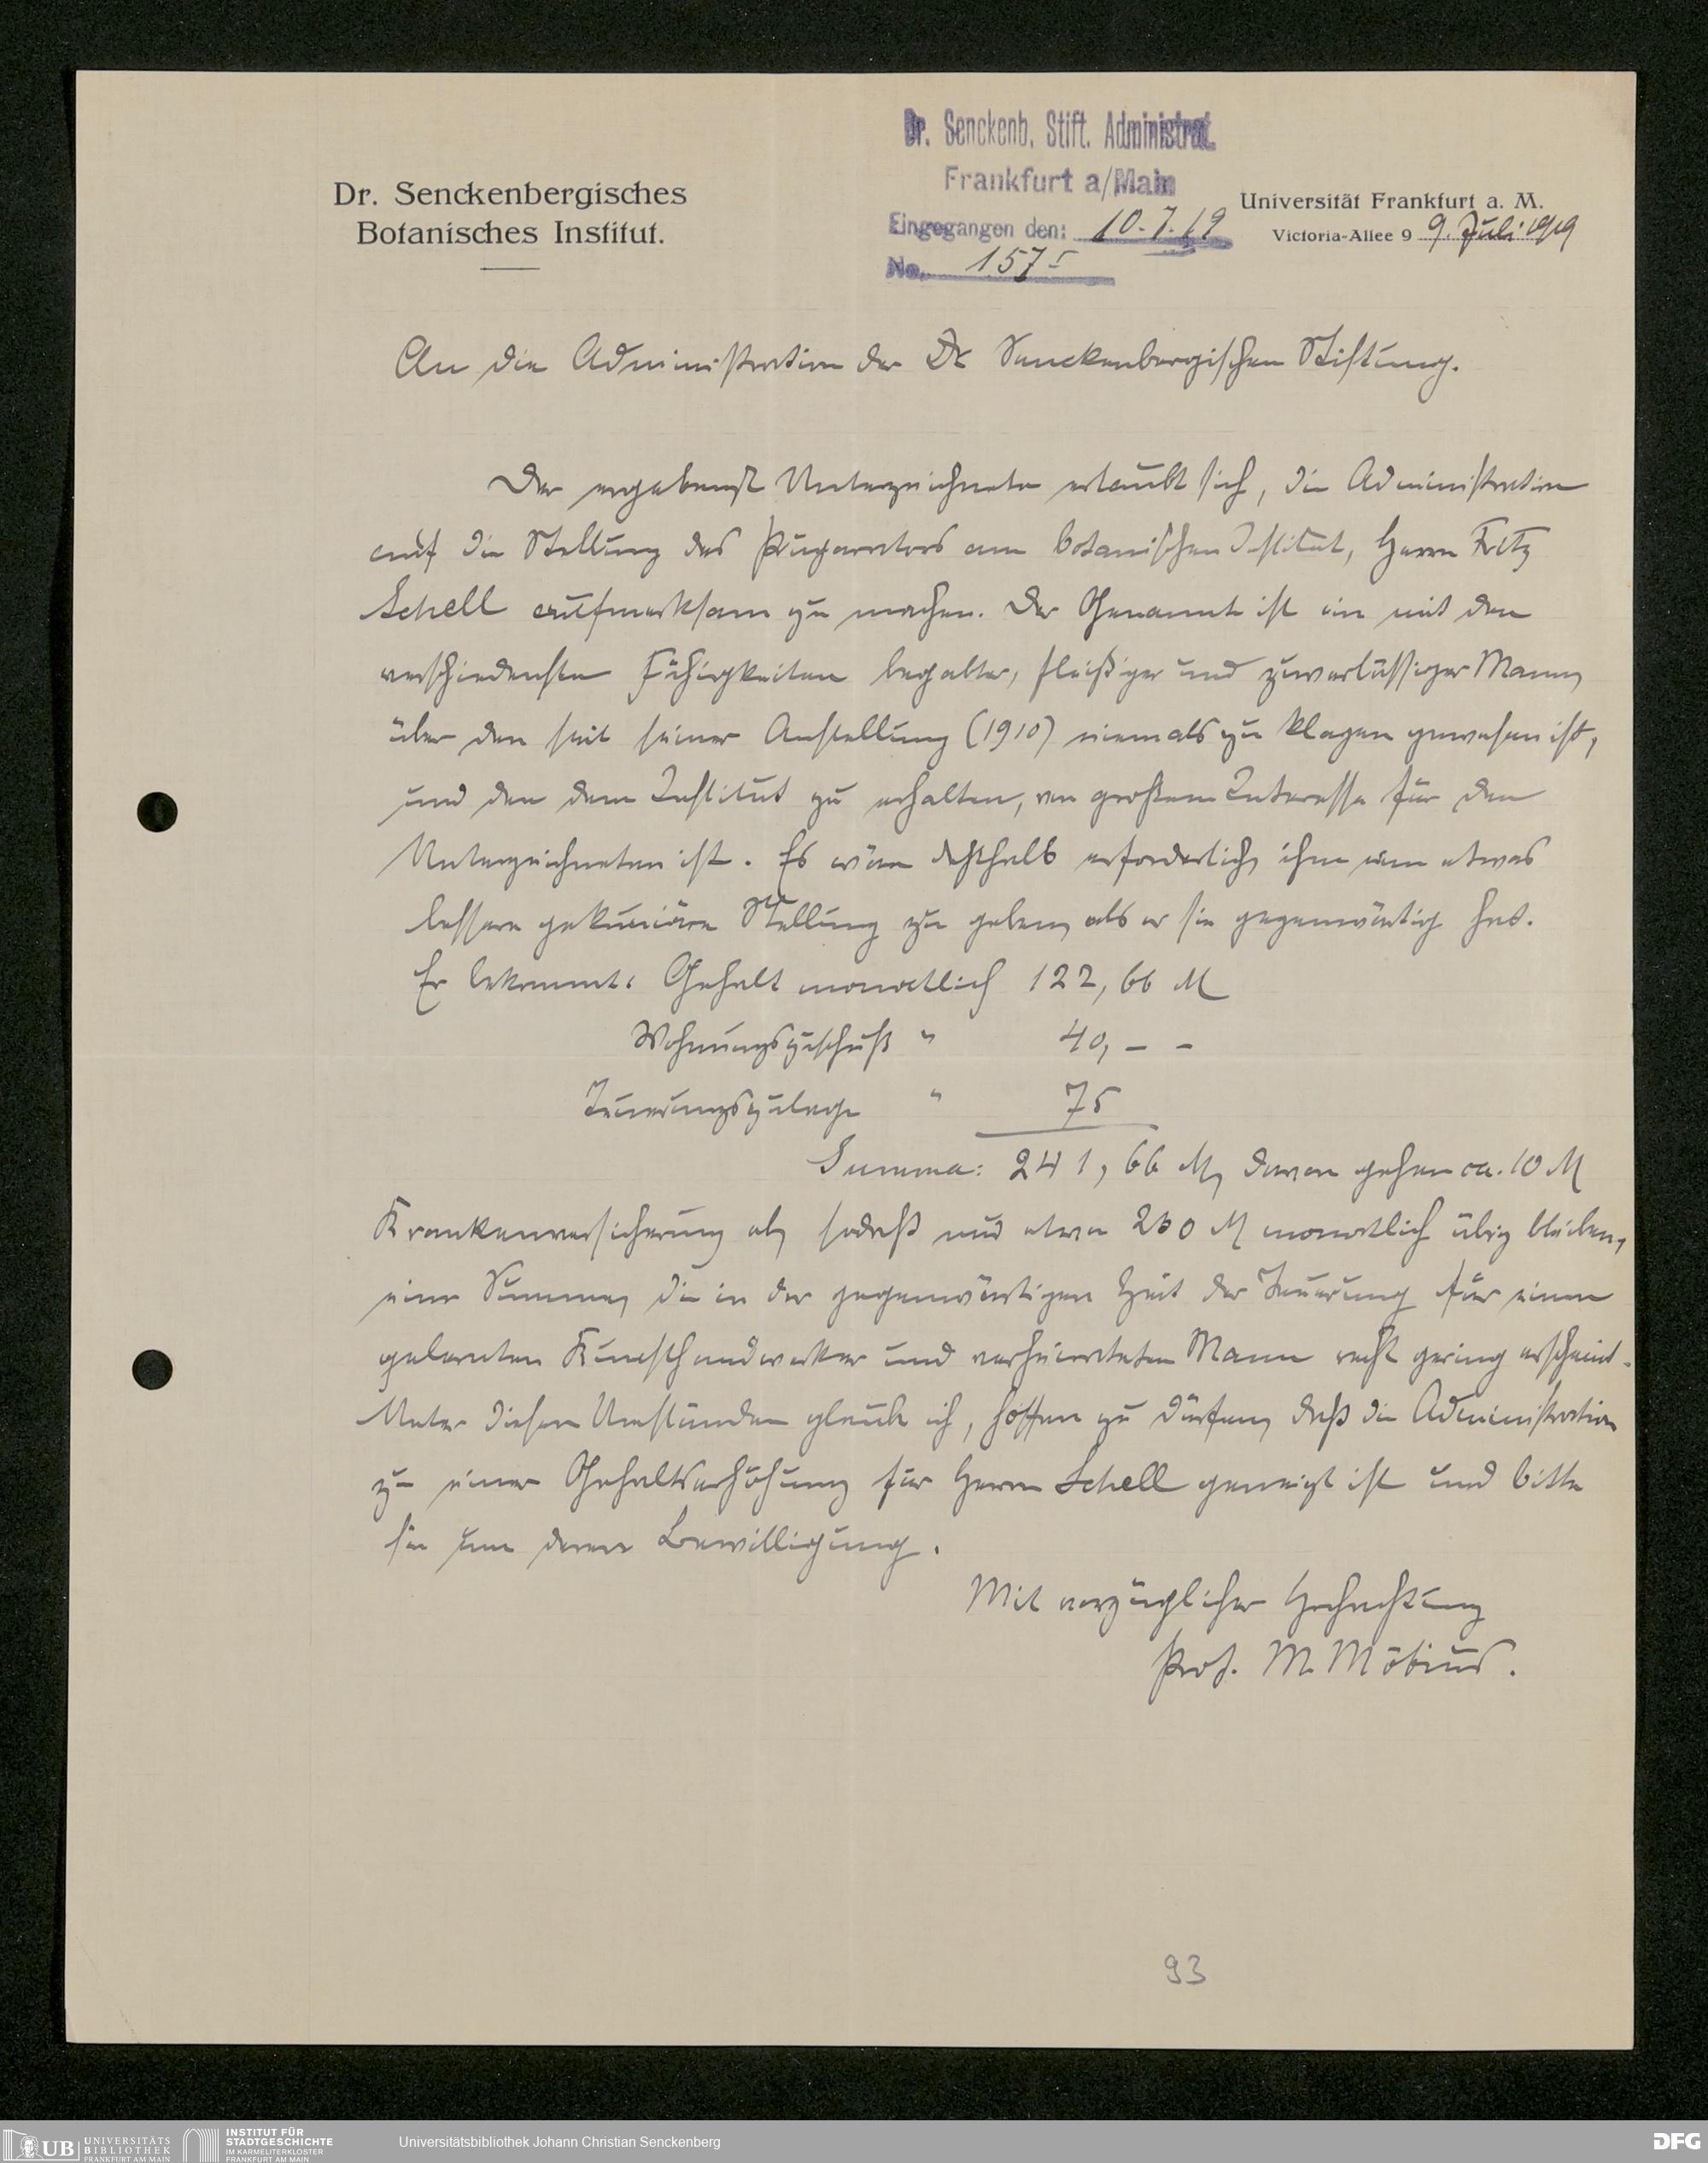 Dr. Senckenb. Stift. Administrat.
Frankfurt a/Main
Eingegangen den: 10.7.19
No. 157 I
Dr. Senckenbergisches
Botanisches Institut.
Universität Frankfurt a. M.
Victoria-Allee 9 9. Juli 1919
An die Administration der Dr. Senckenbergischen Stiftung.
Der ergebenst Unterzeichnete erlaubt sich, die Administration
auf die Stellung des Präparators am botanischen Institut, Herrn Fritz
Schell aufmerksam zu machen. Der Genannte ist ein mit den
verschiedensten Fähigkeiten begabter, fleißiger und zuverlässiger Mann,
über den seit seiner Anstellung (1910) niemals zu klagen gewesen ist,
und den dem Institut zu erhalten, von großem Interesse für den
Unterzeichneten ist. Es wäre deshalb erforderlich, ihm eine etwas
bessere pekuniäre Stellung zu geben, als er sie gegenwärtig hat.
Er bekommt: Gehalt monatlich 122,66 M
Wohnungszuschuß " 40, - -
Teuerungszulage " 75
Summa: 241,66 M, davon gehen ca. 10 M
Krankenversicherung ab, sodaß nur etwa 230 M monatlich übrig bleiben,
eine Summe, die in der gegenwärtigen Zeit der Teuerung für einen
gelernten Kunsthandwerker und verheirateten Mann recht gering erscheint.
Unter diesen Umständen glaube ich, hoffen zu dürfen, daß die Administration
zu einer Gehaltserhöhung für Herrn Schell geneigt ist und bitte
sie um deren Bewilligung.
Mit vorzüglicher Hochachtung
Prof. M. Möbius.
93
UB UNIVERSITÄTS
BIBLIOTHEK
FRANKFURT AM MAIN
INSTITUT FÜR
STADTGESCHICHTE
IM KARMELITERKLOSTER
FRANKFURT AM MAIN
Universitätsbibliothek Johann Christian Senckenberg
DFG